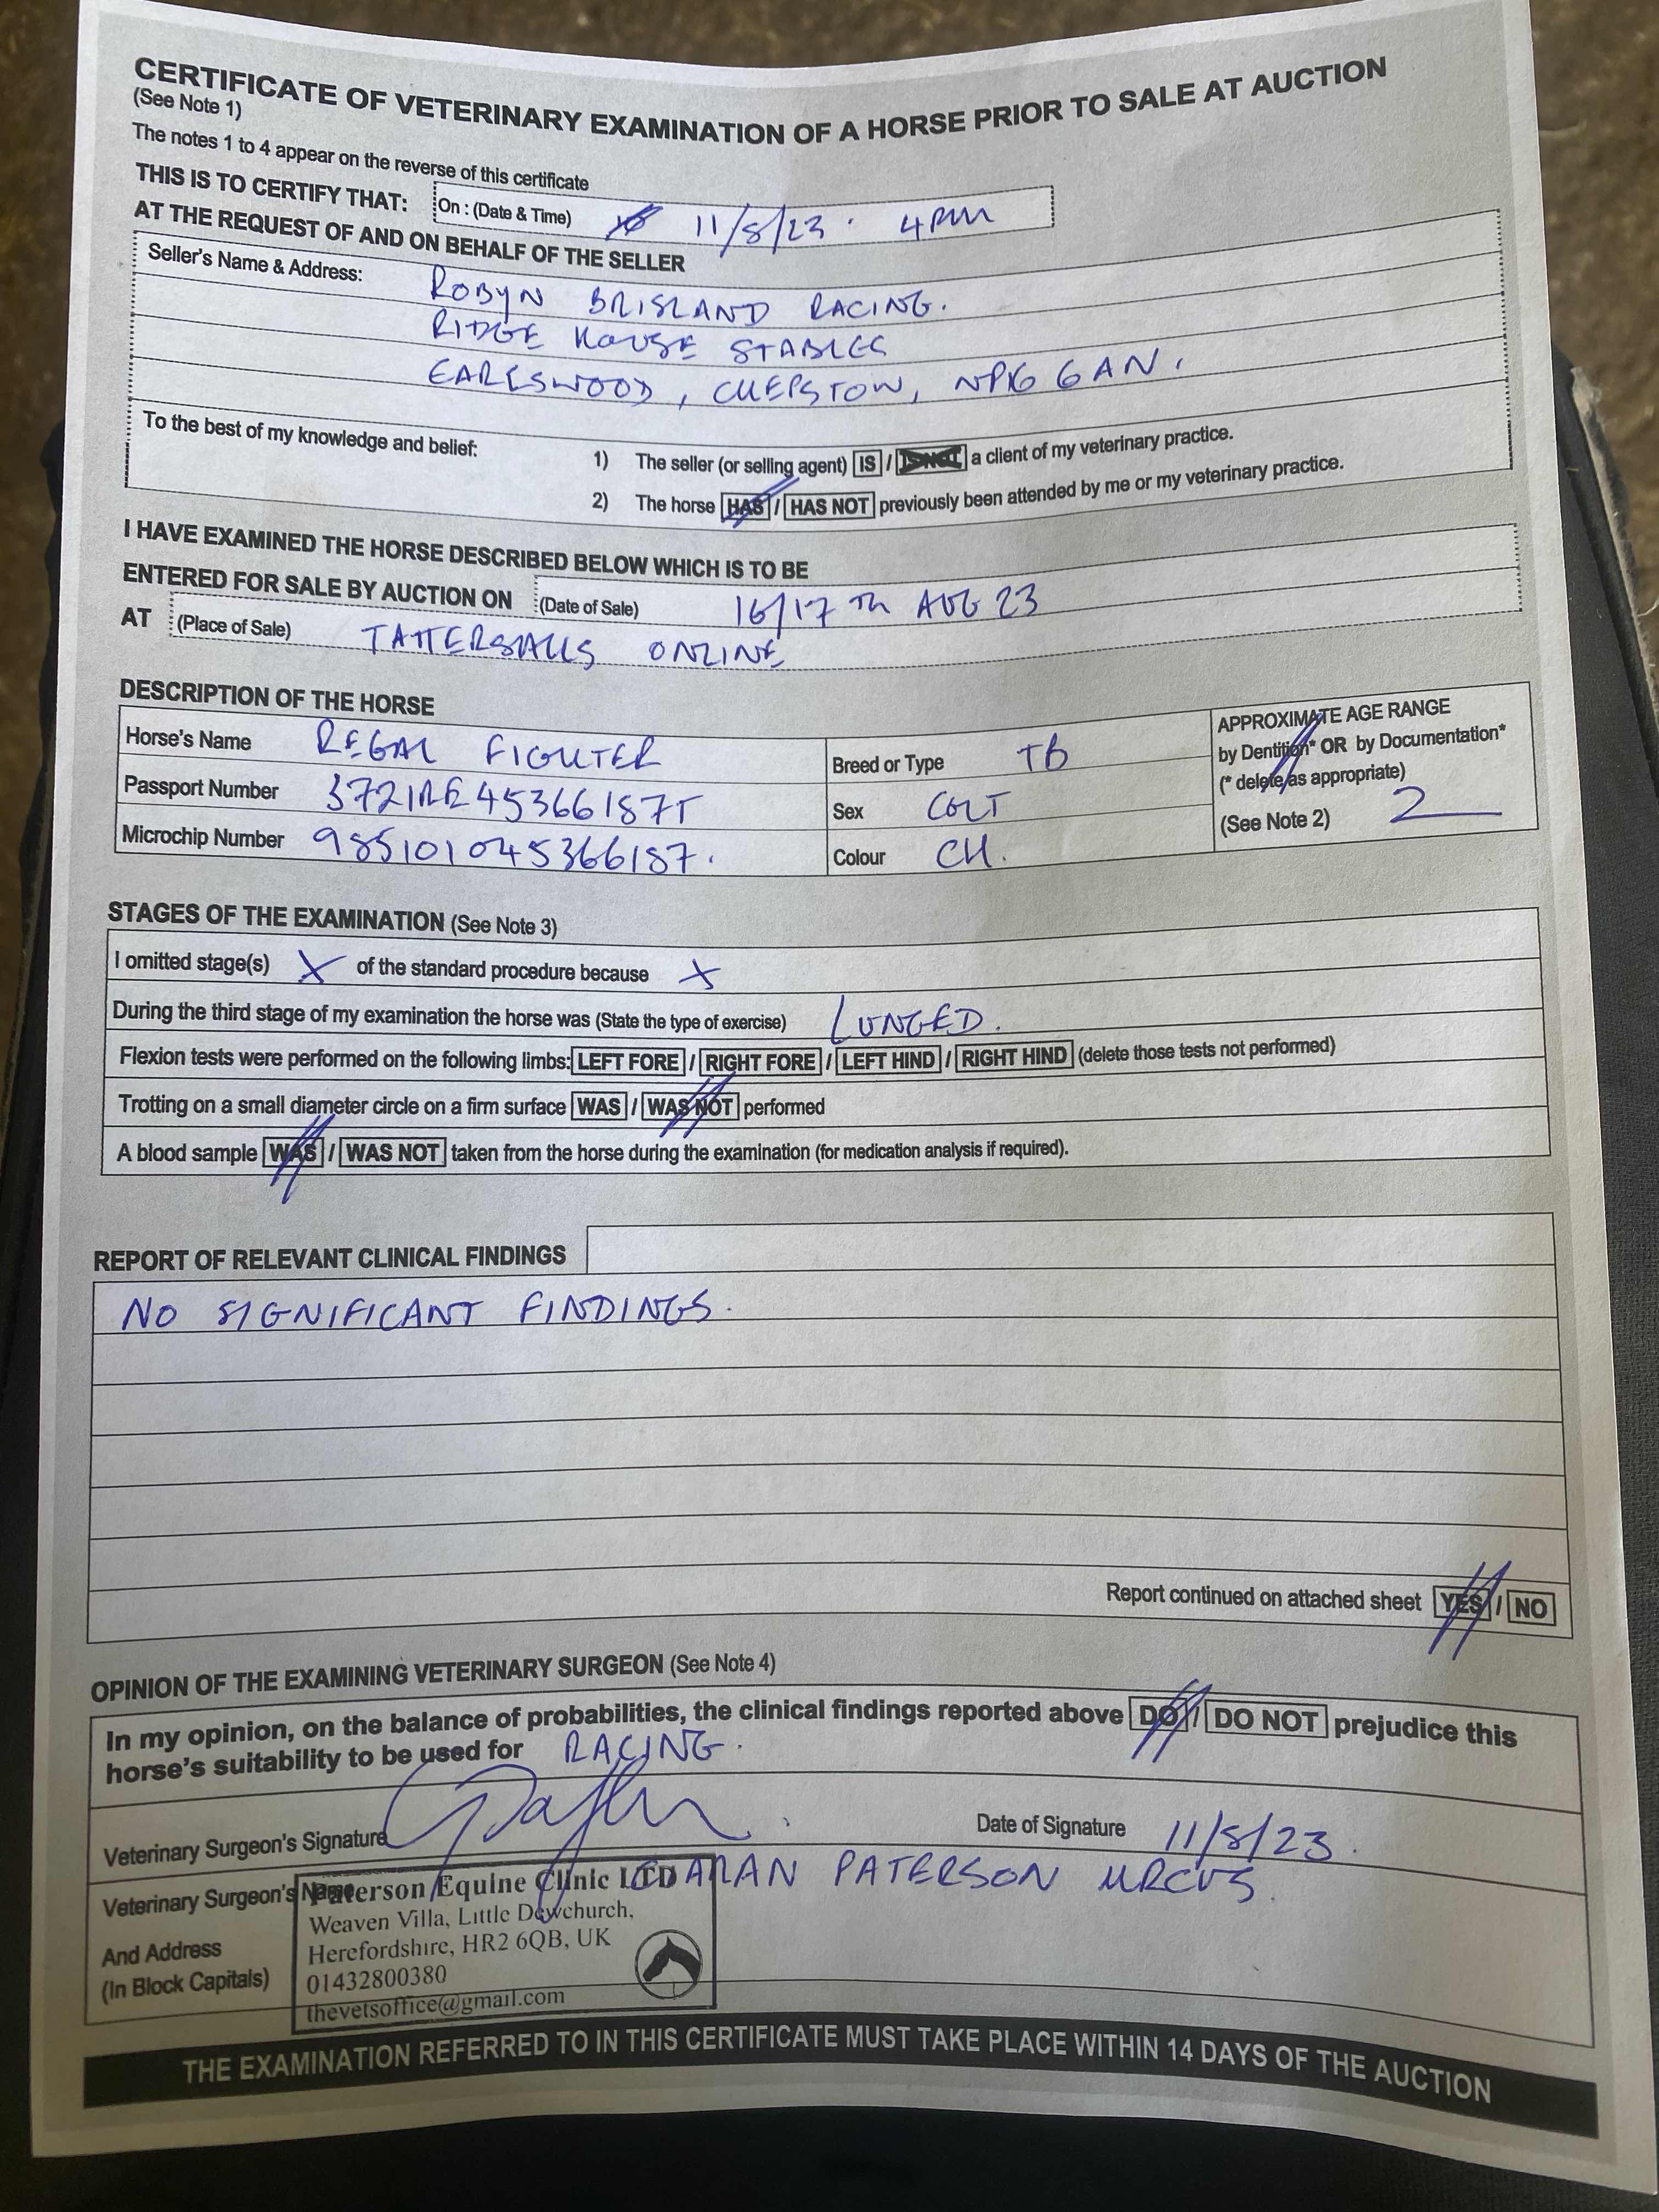 CERTIFICATE OF VETERINARY EXAMINATION OF A HORSE PRIOR TO SALE AT AUCTION
(See Note 1)
The notes 1 to 4 appear on the reverse of this certificate
THIS IS TO CERTIFY THAT: On : (Date & Time) 11/8/23 . 4PM
AT THE REQUEST OF AND ON BEHALF OF THE SELLER
Seller's Name & Address: ROBYN BRISLAND RACING.
RIDGE HOUSE STABLES
EARLSWOOD, CHEPSTOW, NP16 6AN.
To the best of my knowledge and belief:
1) The seller (or selling agent) IS / IS NOT a client of my veterinary practice.
2) The horse HAS / HAS NOT previously been attended by me or my veterinary practice.
I HAVE EXAMINED THE HORSE DESCRIBED BELOW WHICH IS TO BE
ENTERED FOR SALE BY AUCTION ON (Date of Sale) 16/17TH AUG 23
AT (Place of Sale) TATTERSALLS ONLINE
DESCRIPTION OF THE HORSE
Horse's Name REGAL FIGHTER
Passport Number 372IRE45366187T
Microchip Number 985101045366187.
Breed or Type TB
Sex COLT
Colour CH.
APPROXIMATE AGE RANGE
by Dentition* OR by Documentation*
(* delete as appropriate)
(See Note 2) 2
STAGES OF THE EXAMINATION (See Note 3)
I omitted stage(s) X of the standard procedure because X
During the third stage of my examination the horse was (State the type of exercise) LUNGED.
Flexion tests were performed on the following limbs: LEFT FORE / RIGHT FORE / LEFT HIND / RIGHT HIND (delete those tests not performed)
Trotting on a small diameter circle on a firm surface WAS / WAS NOT performed
A blood sample WAS / WAS NOT taken from the horse during the examination (for medication analysis if required).
REPORT OF RELEVANT CLINICAL FINDINGS
NO SIGNIFICANT FINDINGS.
Report continued on attached sheet YES / NO
OPINION OF THE EXAMINING VETERINARY SURGEON (See Note 4)
In my opinion, on the balance of probabilities, the clinical findings reported above DO / DO NOT prejudice this
horse's suitability to be used for RACING.
Veterinary Surgeon's Signature
Date of Signature 11/8/23.
Veterinary Surgeon's Name PATERSON MRCVS
And Address
(In Block Capitals)
Paterson Equine Clinic LTD
Weaven Villa, Little Dewchurch,
Herefordshire, HR2 6QB, UK
01432800380
thevetsoffice@gmail.com
THE EXAMINATION REFERRED TO IN THIS CERTIFICATE MUST TAKE PLACE WITHIN 14 DAYS OF THE AUCTION